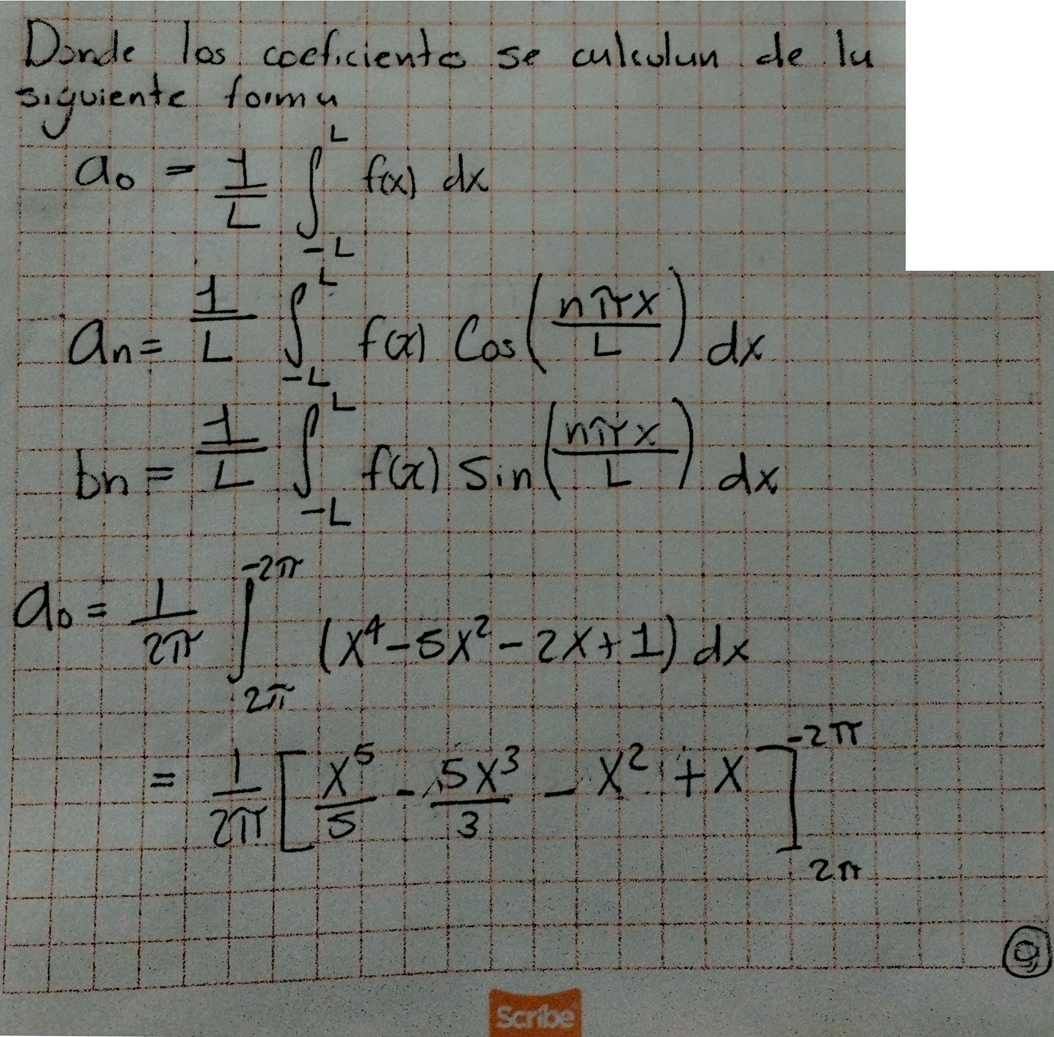 Donde los coeficientes se calculan de la
siguiente forma
a₀ = 1/L ∫_{-L}^{L} f(x) dx
aₙ = 1/L ∫_{-L}^{L} f(x) Cos(nπx/L) dx
bₙ = 1/L ∫_{-L}^{L} f(x) Sin(nπx/L) dx
a₀ = 1/2π ∫_{2π}^{-2π} (x⁴-5x²-2x+1) dx
= 1/2π [x⁵/5 - 5x³/3 - x² + x]_{2π}^{-2π}
9
Scribe